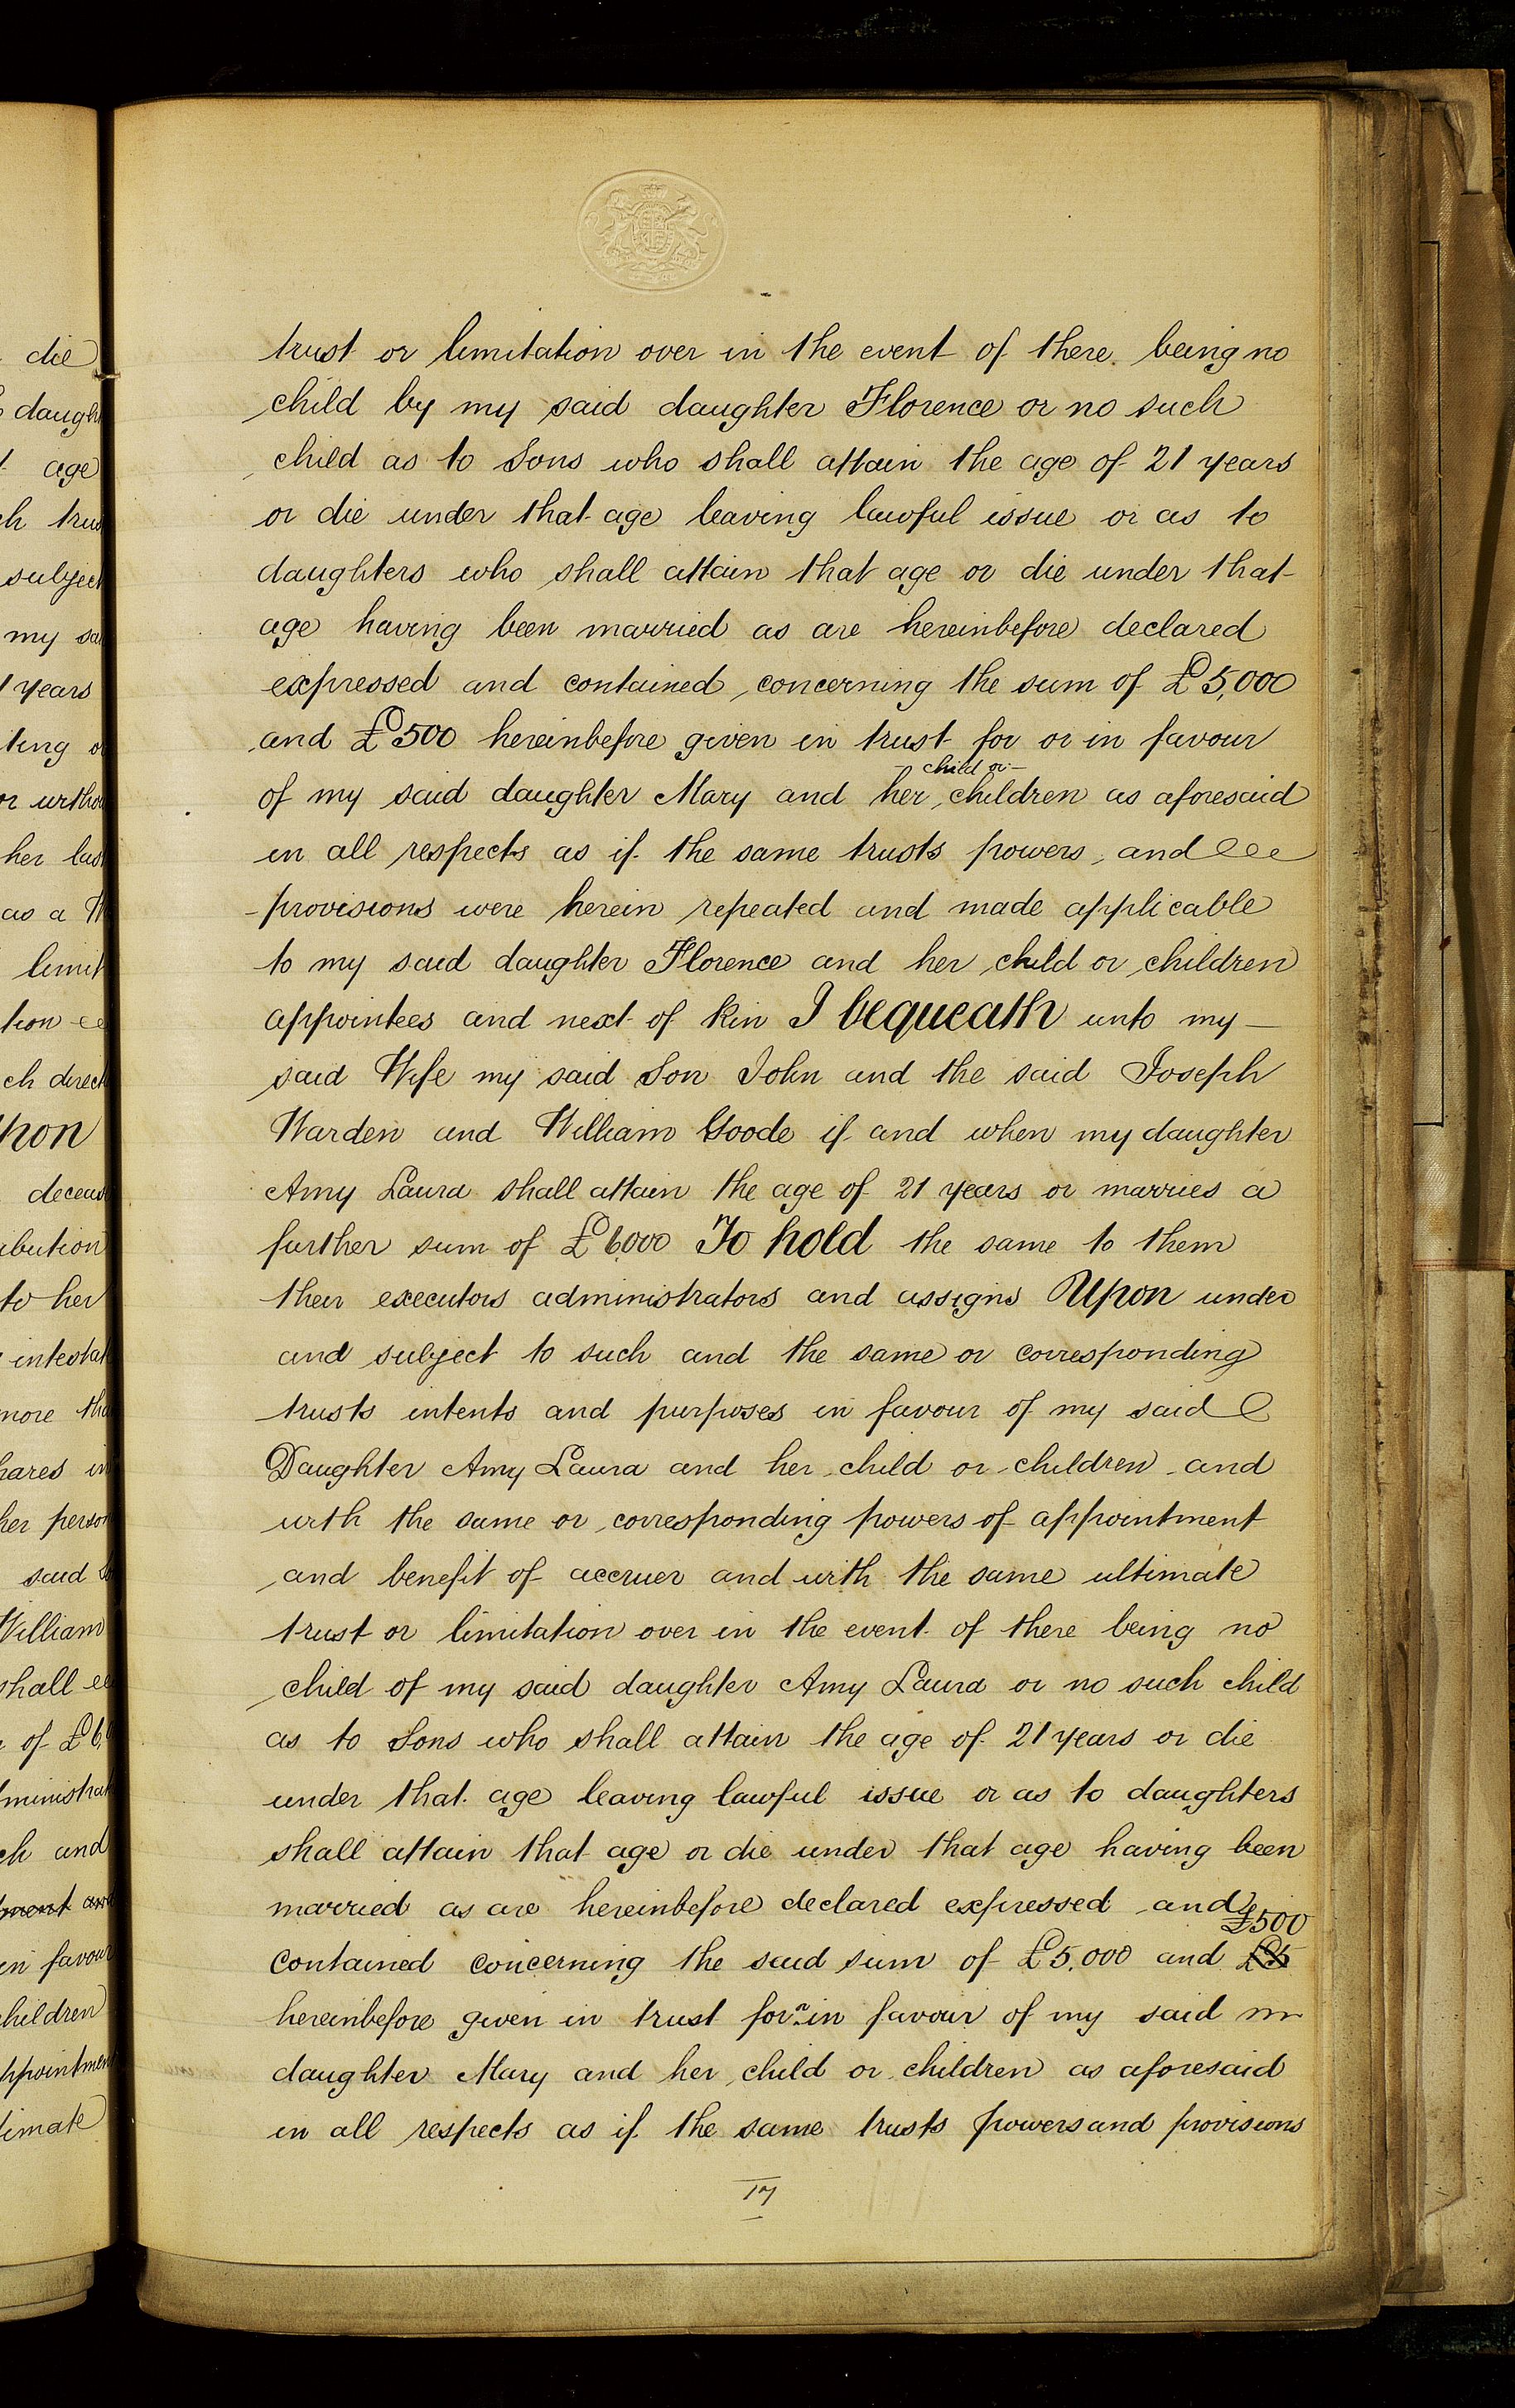 die
daugh
age
ch trus
subject
my sa
years
ting o
or witho
her las
as a
limit
tion
ch direct
pon
deceas
ibution
to her
intestat
more tha
hares in
her person
said
William
shall
of £6,
ministrat
ch and
ment and
in favour
children
ppointment
timate
trust or limitation over in the event of there being no
child by my said daughter Florence or no such
child as to Sons who shall attain the age of 21 years
or die under that age leaving lawful issue or as to
daughters who shall attain that age or die under that
age having been married as are hereinbefore declared
expressed and contained concerning the sum of £5,000
and £500 hereinbefore given in trust for or in favour
child or
of my said daughter Mary and her children as aforesaid
in all respects as if the same trusts powers and
provisions were herein repeated and made applicable
to my said daughter Florence and her child or children
appointees and next of kin I bequeath unto my
said Wife my said Son John and the said Joseph
Warden and William Goode if and when my daughter
Amy Laura shall attain the age of 21 years or marries a
further sum of £6,000 To hold the same to them
their executors administrators and assigns Upon under
and subject to such and the same or corresponding
trusts intents and purposes in favour of my said
Daughter Amy Laura and her child or children and
with the same or corresponding powers of appointment
and benefit of accruer and with the same ultimate
trust or limitation over in the event of there being no
child of my said daughter Amy Laura or no such child
as to Sons who shall attain the age of 21 years or die
under that age leaving lawful issue or as to daughters
shall attain that age or die under that age having been
married as are hereinbefore declared expressed and
£500
contained concerning the said sum of £5.000 and £5
hereinbefore given in trust for in favour of my said
daughter Mary and her child or children as aforesaid
in all respects as if the same trusts powers and provisions
17